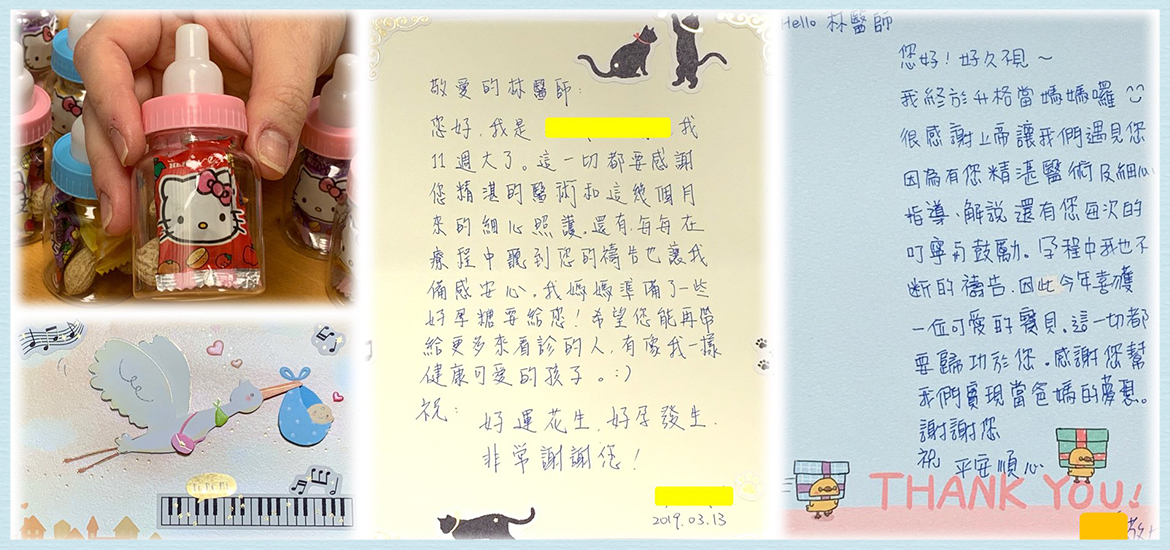 敬愛的林醫師:
您好,我是
我
11週大了。這一切都要感謝
您精湛的醫術和這幾個月
來的細心照護。還有,每每在
療程中聽到您的禱告也讓我
備感安心。我媽媽準備了一些
好孕糖要給您!希望您能再帶
給更多來看診的人,有像我一樣
健康可愛的孩子。:)
祝:
好運花生,好孕發生.
非常謝謝您!
2019.03.13
Hello 林醫師
您好!好久不見~
我終於升格當媽媽囉
很感謝上帝讓我們遇見您
因為有您精湛醫術及細心
指導、解說還有您每次的
叮嚀與鼓勵。孕程中我也不
斷的禱告.因此今年喜獲
一位可愛的寶貝。這一切都
要歸功於您。感謝您幫
我們實現當爸媽的夢想。
謝謝您
祝 平安順心
THANK YOU!
敬上